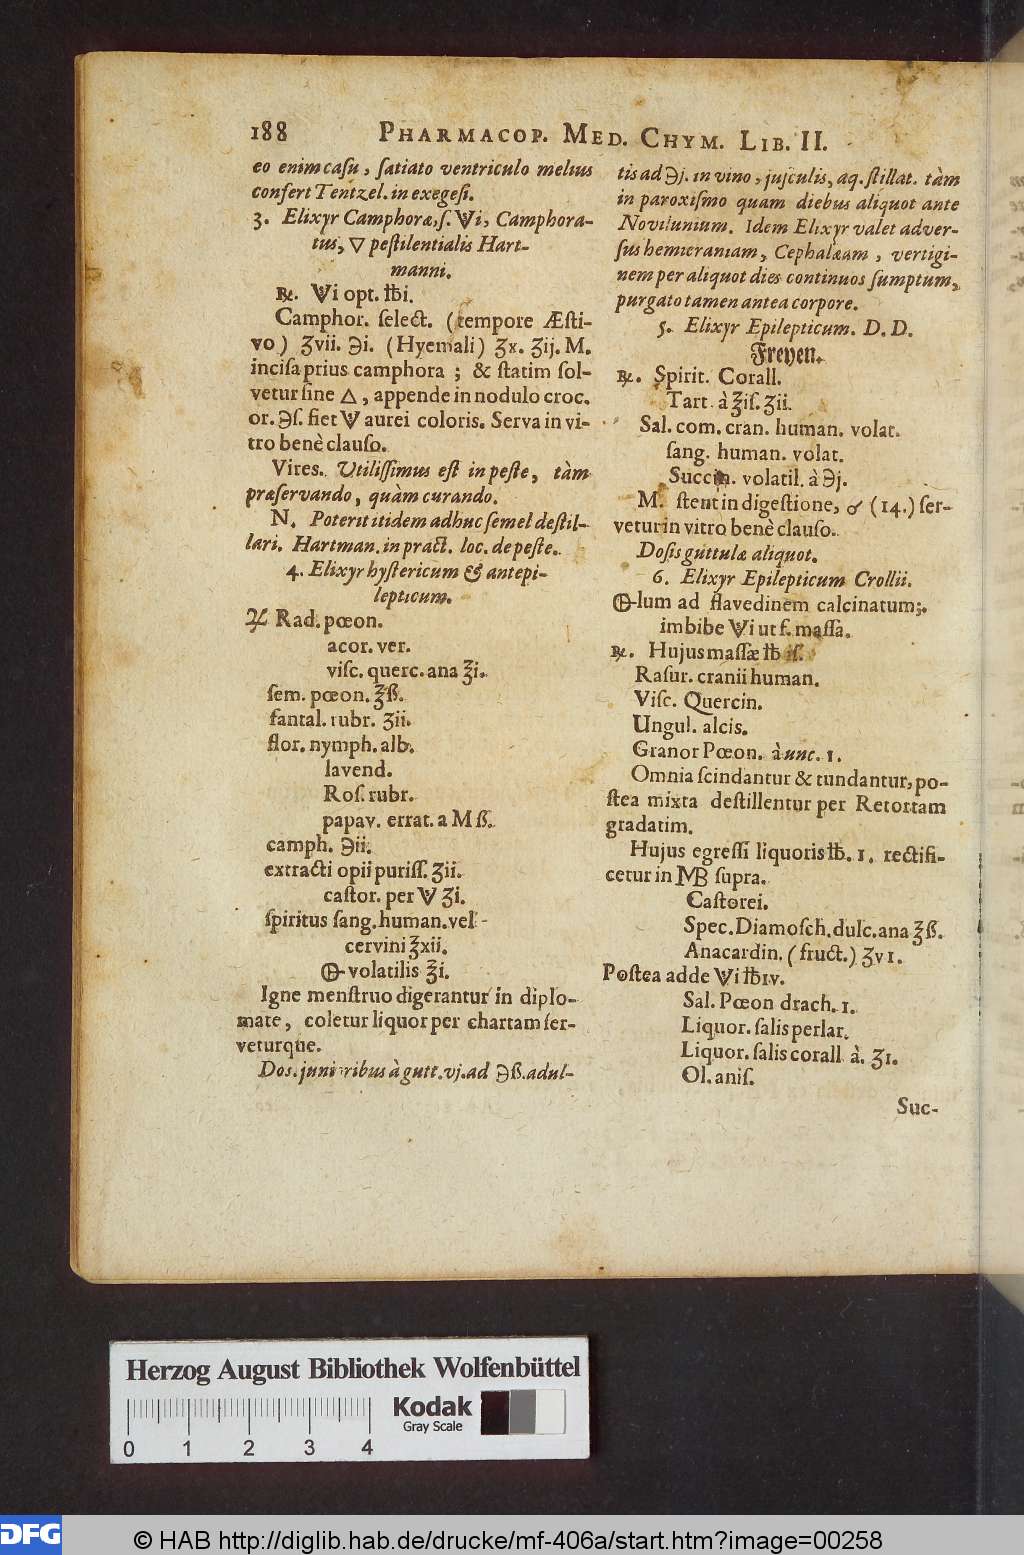 188 PHARMACOP. MED. CHYM. LIB. II.
eo enim caſu, ſatiato ventriculo melius
confert Tentzel. in exegeſi.
3. Elixyr Camphoræ, ſ. Vi, Camphora-
tus, 🜄 peſtilentialis Hart-
manni.
℞. Vi opt. ℔i.
Camphor. ſelect. (tempore Æſti-
vo) ʒvii. ℈i. (Hyemali) ʒx. ʒij. M.
inciſa prius camphora ; & ſtatim ſol-
vetur ſine 🜂, appende in nodulo croc.
or. ℈ſ. fiet V aurei coloris. Serva in vi-
tro benè clauſo.
Vires. Utiliſſimus eſt in peſte, tàm
præſervando, quàm curando.
N. Poterit itidem adhuc ſemel deſtil-
lari. Hartman. in pract. loc. de peſte.
4. Elixyr hyſtericum & antepi-
lepticum.
♃ Rad. pœon.
acor. ver.
viſc. querc. ana ℥i.
ſem. pœon. ℥ß.
ſantal. rubr. ʒii.
flor. nymph. alb.
lavend.
Roſ. rubr.
papav. errat. a M ß.
camph. ℈ii.
extracti opii puriſſ. ʒii.
caſtor. per V ʒi.
ſpiritus ſang. human. vel
cervini ℥xii.
🜔 volatilis ℥i.
Igne menſtruo digerantur in diplo-
mate, coletur liquor per chartam ſer-
veturque.
Dos. junioribus à gutt. vj. ad ℈ß. adul-
tis ad ℈j. in vino, juſculis, aq. ſtillat. tàm
in paroxiſmo quam diebus aliquot ante
Novilunium. Idem Elixyr valet adver-
ſus hemicraniam, Cephalæam, vertigi-
nem per aliquot dies continuos ſumptum,
purgato tamen antea corpore.
5. Elixyr Epilepticum. D. D.
Freyen.
℞. Spirit. Corall.
Tart. à ℥iſ. ʒii.
Sal. com. cran. human. volat.
ſang. human. volat.
Succin. volatil. à ℈j.
M. ſtent in digeſtione, ☌ (14.) ſer-
vetur in vitro benè clauſo.
Doſis guttulæ aliquot.
6. Elixyr Epilepticum Crollii.
🜔lum ad flavedinem calcinatum;.
imbibe Vi ut f. maſſa.
℞. Hujus maſſæ ℔ iſ.
Raſur. cranii human.
Viſc. Quercin.
Ungul. alcis.
Granor Pœon. à unc. 1.
Omnia ſcindantur & tundantur, po-
ſtea mixta deſtillentur per Retortam
gradatim.
Hujus egreſſi liquoris ℔. 1. rectifi-
cetur in MB ſupra.
Caſtorei.
Spec. Diamoſch. dulc. ana ℥ß.
Anacardin. (fruct.) ʒv1.
Poſtea adde Vi ℔iv.
Sal. Pœon drach. 1.
Liquor. ſalis perlar.
Liquor. ſalis corall à. ʒ1.
Ol. aniſ.
Suc-
Herzog August Bibliothek Wolfenbüttel
Kodak
Gray Scale
0 1 2 3 4
DFG
© HAB http://diglib.hab.de/drucke/mf-406a/start.htm?image=00258